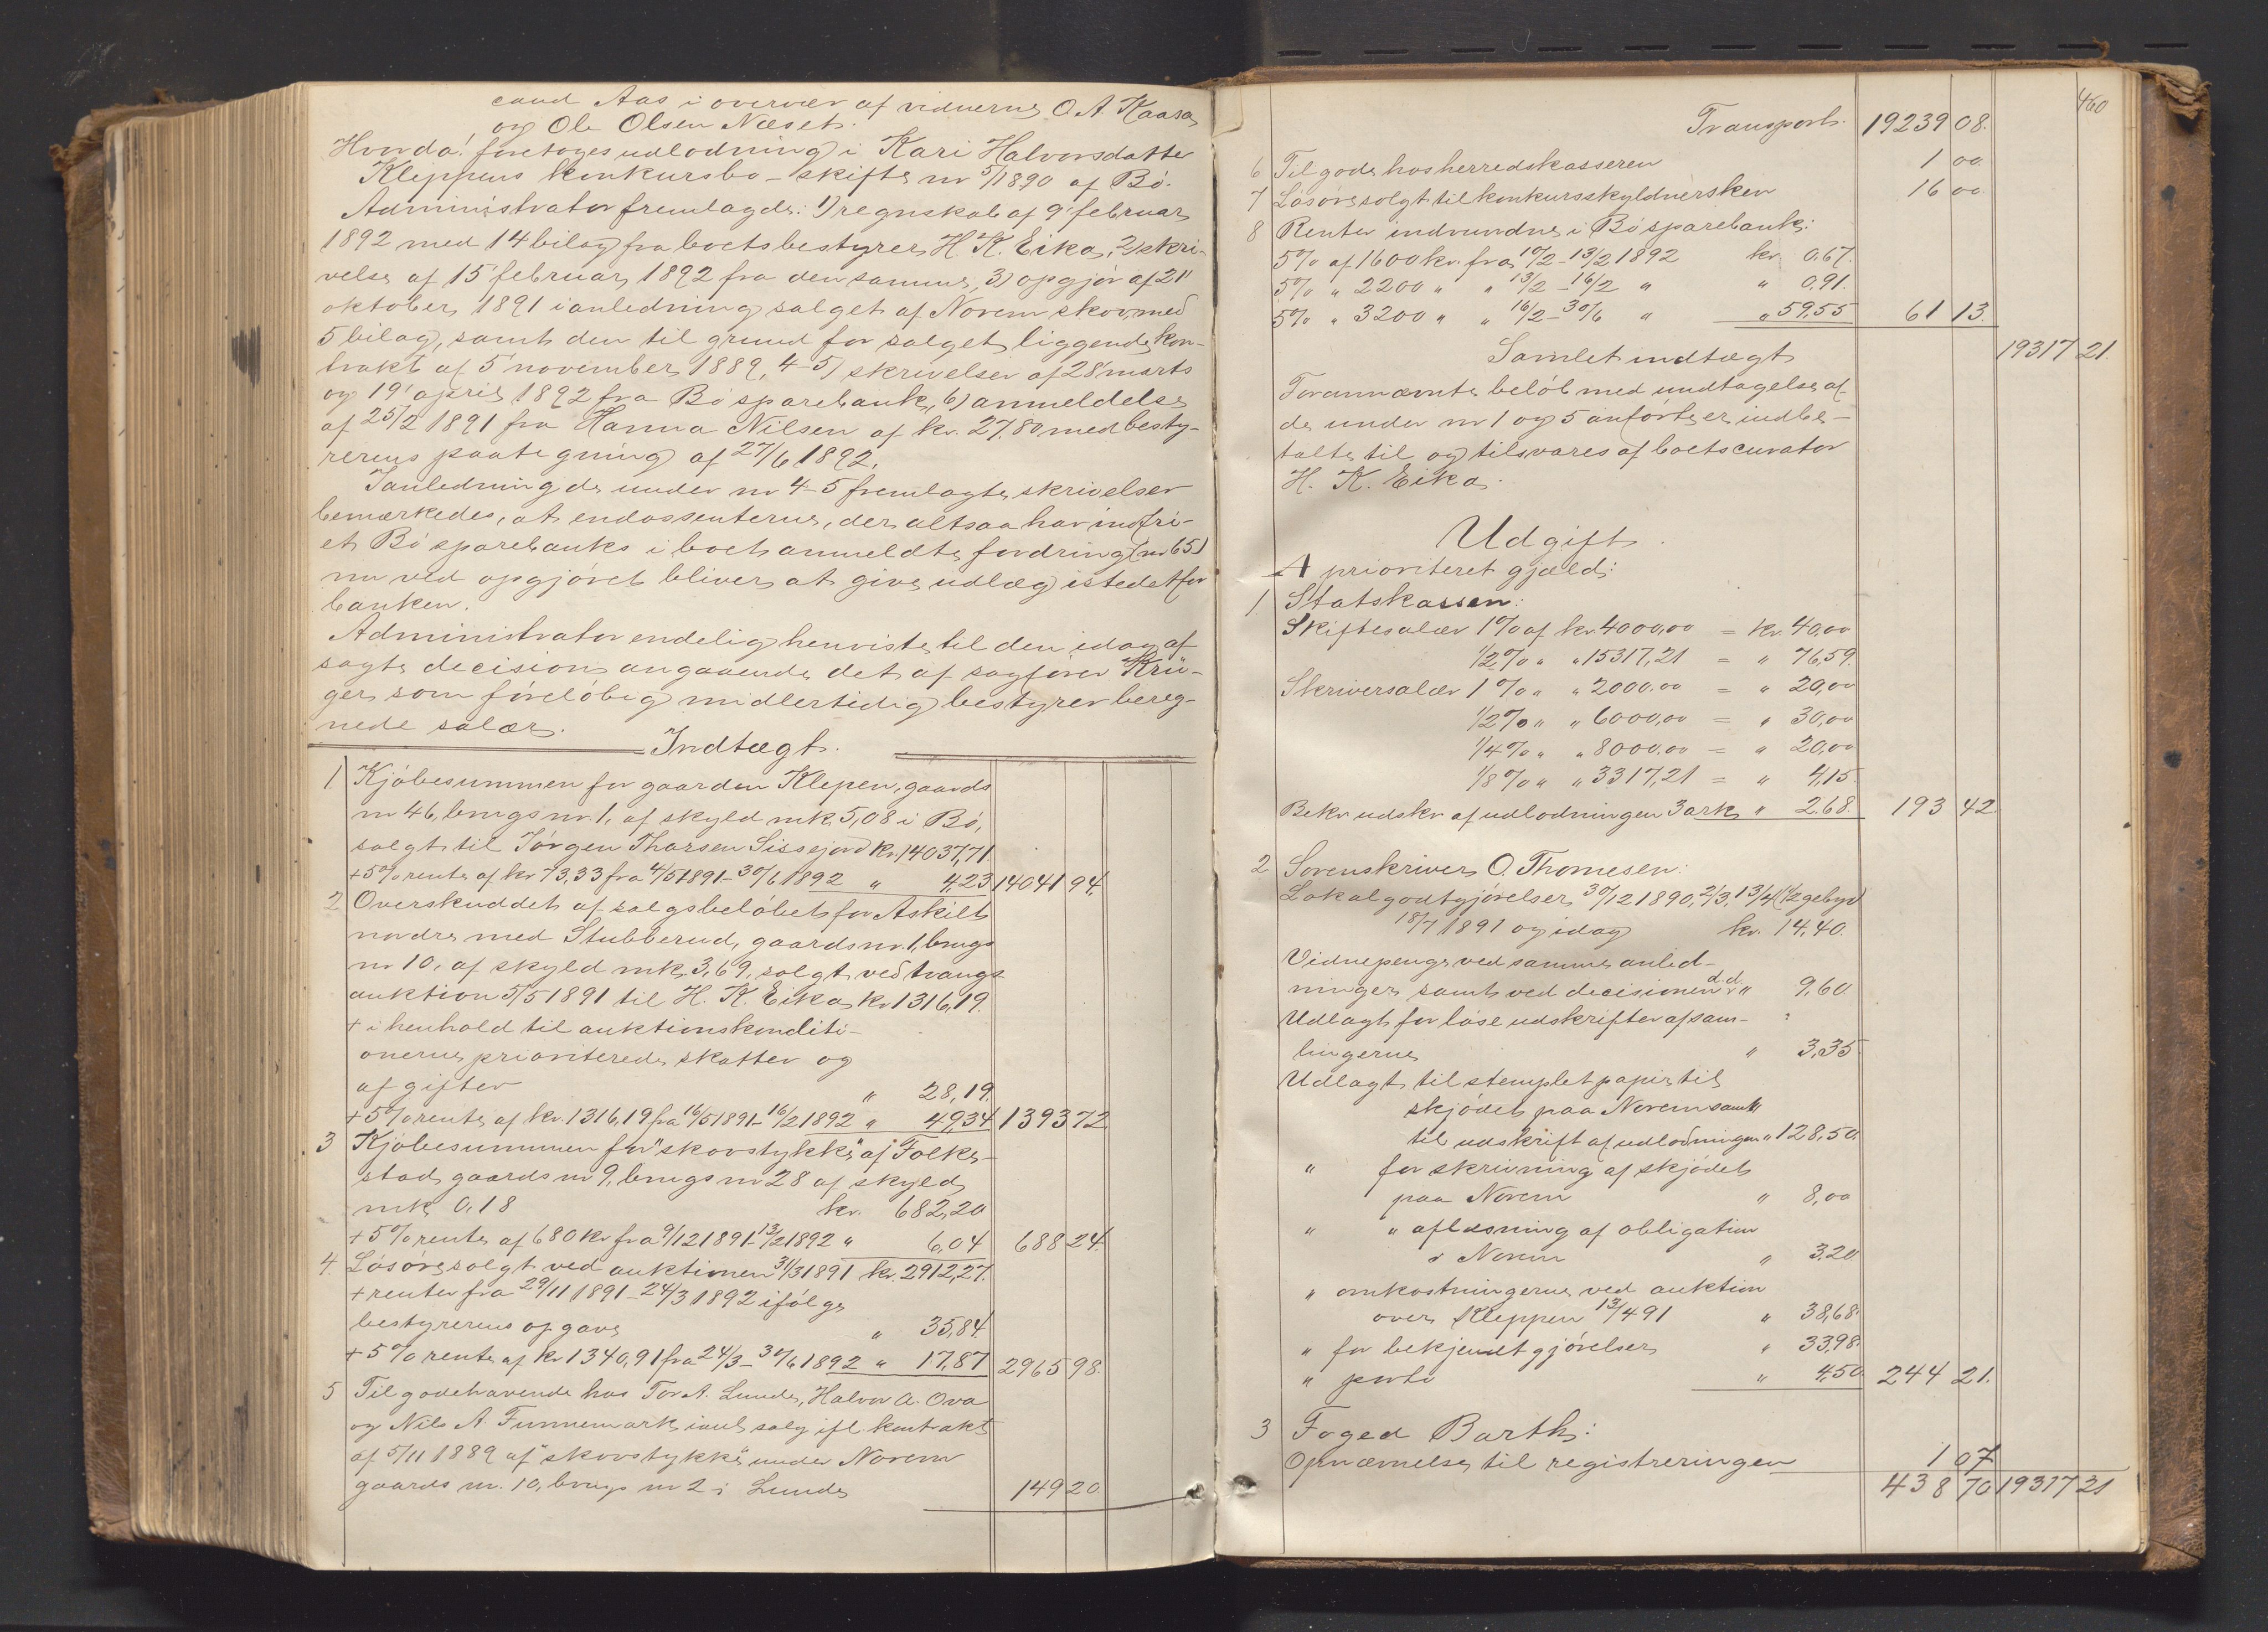 cand Aas i overvær af vidnerne O. A. Kaasa
og Ole Olsen Næset.
Hvorda! foretoges udlodning i Kari Halvorsdatter
Kleppens konkursbo – skifte nr 5/1890 af Bø.
Administrator fremlagde: 1) regnskab af 9' februar
1892 med 14 bilag fra boets bestyrer H. K. Eika, 2) skri-
velse af 15' februar 1892 fra den samme, 3) opgjør af 21'
oktober 1891 i anledning salget af Norem skov, med
5 bilag, samt den til grund for salget liggende kon-
trakt af 5' november 1889, 4-5) skrivelser af 28' marts
og 19' april 1892 fra Bø sparebank, 6) anmeldelse
af 25/2 1891 fra Hanna Nilsen af kr. 27,80 med besty-
rerens paategning af 27/6 1892.
I anledning de under nr 4-5 fremlagte skrivelser
bemærkedes, at endossenterne, der altsaa har indfri-
et Bø sparebanks i boet anmeldte fordring (nr 65)
nu ved opgjøret bliver at give udlæg istedetfor
banken.
Administrator endelig henviste til den idag af-
sagte decision angaaende det af sagfører Krü-
ger som foreløbig midlertidig bestyrer bereg-
nede salær.
Indtægt.
1. Kjøbesummen for gaarden Klepen, gaards
nr 46, brugs nr. 1, af skyld mk. 5,08 i Bø,
solgt til Jørgen Tharsen Sissejord kr. 14037,71
+ 5% rente af kr 73,33 fra 4/5 1891 – 30/6 1892 " 4,23 14041 94.
2 Overskuddet af salgsbeløbet for Askilt
nordre med Stubberud, gaards nr. 1, brugs
nr 10, af skyld mk. 3,69, solgt ved tvangs
auktion 5/5 1891 til H. K. Eika kr 1316,19.
+ i henhold til auktionskonditi-
onerne prioriterede skatter og
afgifter " 28,19.
+ 5% rente af kr. 1316,19 fra 16/5 1891 – 16/2 1892 " 49,34 1393 72
3 Kjøbesummen for "skovstykke" af Folke-
stad, gaards nr 9, brugs nr 28 af skyld
mk. 0,18 kr. 682,20
+ 5% rente af 680 kr fra 9/12 1891 – 13/2 1892 " 6,04 688 24.
4. Løsøre solgt ved auktionen 31/3 1891 kr. 2912,27.
+ renter fra 29/11 1891 – 24/3 1892 ifølge
bestyrerens opgave " 35,84.
+ 5% rente af kr 1340,91 fra 24/3 – 30/6 1892 " 17,87 2965 98.
5 Tilgodehavende hos Tor A. Lunde, Halvor A. Ova
og Nils A. Funnemark i anl. salg ifl. kontrakt
af 5/11 1889 af "skovstykke" under Norem
gaards nr. 10, brugs nr 2 i Lunde 149 20
460
Transport. 19239 08.
6 Tilgode hos herredskasseren 1 00
7 Løsøre solgt til konkursskyldnersken 16 00
8 Renter indvundne i Bø sparebank:
5% af 1600 kr. fra 10/2 – 13/2 1892 kr. 0,67.
5% " 2200 " " 13/2 – 16/2 " " 0,91.
5% " 3200 " " 16/2 – 30/6 " " 59,55 61 13.
Samlet indtægt 19317 21.
Forannævnte beløb med undtagelse af
de under nr 1 og 5 anførte er indbe-
talte til og tilsvares af boets curator
H. K. Eika.
Udgift.
A prioriteret gjæld:
1. Statskassen:
Skiftesalær 1% af kr 4000,00 = kr. 40,00
1/2% " " 15317,21 = " 76,59.
Skriversalær 1% " " 2000.00 = " 20,00
1/2% " " 6000,00 = " 30,00
1/4% " " 8000.00 = " 20,00
1/8% " " 3317,21 = " 4,15
Bekr. udskr af udlodningen 3 ark " 2.68. 193 42.
2 Sorenskriver O. Thomesen:
Lokalgodtgjørelser 30/12 1890, 2/3, 13/4 (1/2 gebyr)
18/7 1891 og idag kr. 14,40.
Vidnepenge ved samme anled-
ninger samt ved decisionen d.d. " 9,60
Udlagt for løse udskrifter af sam-
lingerne " 3,35
Udlagt til stemplet papir til
skjødet paa Norem samt
til udskrift af udlodningen " 128,50.
" for skrivning af skjødet
paa Norem " 8,00
" " aflæsning af obligation
i Norem " 3.20
" omkostningerne ved auktion
over Kleppen 13/4 91 " 38,68.
" for bekjendtgjørelser " 33,98.
" porto " 4,50 244 21.
3 Foged Barth:
Opnævnelse til registreringen 1 07
438 70 19317 21